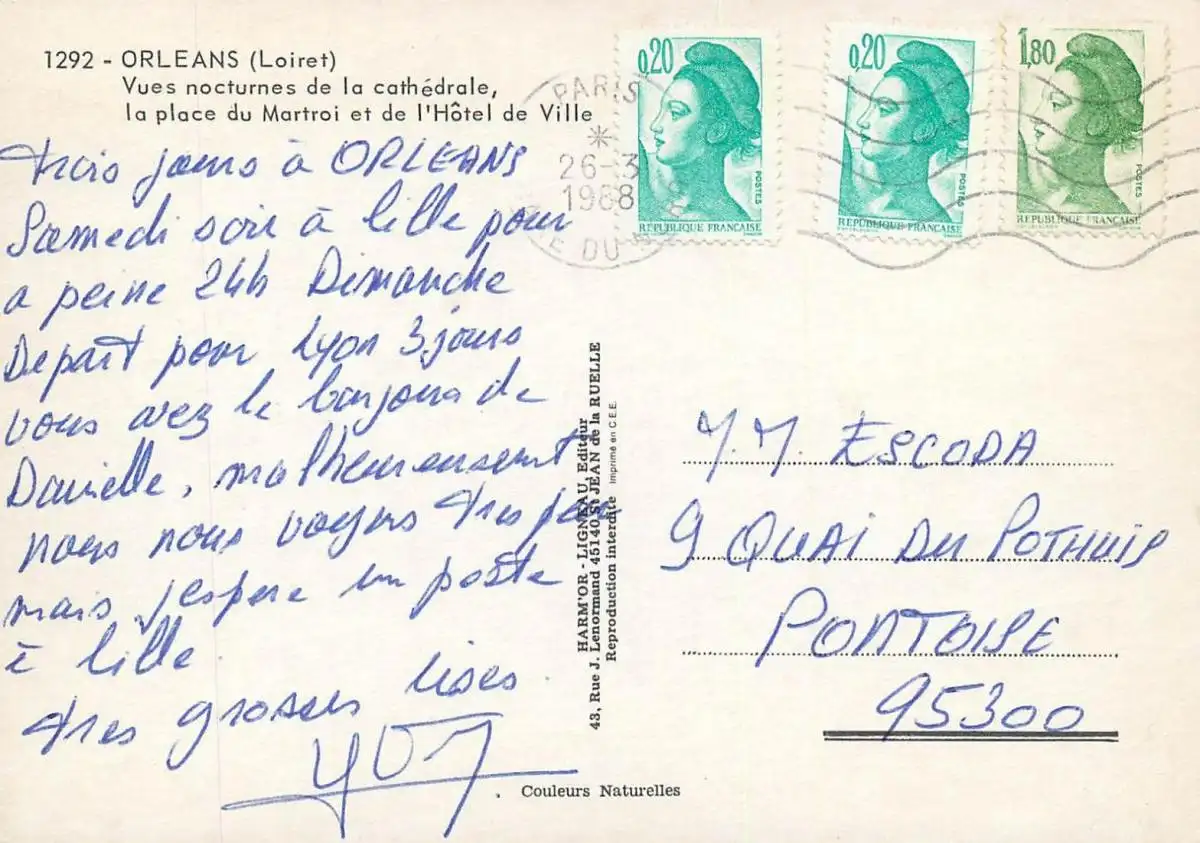 1292 - ORLEANS (Loiret)
Vues nocturnes de la cathédrale,
la place du Martroi et de l'Hôtel de Ville
trois jours à ORLEANS
Samedi soir à lille pour
a peine 24h Dimanche
Depart pour Lyon 3 jours
vous avez le bonjour de
Danielle, malheureusement
nous nous voyons tres peu
mais j'espere un poste
à lille
tres grosses bises
0,20
RÉPUBLIQUE FRANÇAISE
POSTES
0,20
RÉPUBLIQUE FRANÇAISE
POSTES
1,80
RÉPUBLIQUE FRANÇAISE
POSTES
PARIS
26-3
1988
DU
HARM'OR - LIGNEAU, Editeur
43, Rue J. Lenormand 45140 St JEAN de la RUELLE
Reproduction interdite Imprimé en C.E.E.
M.M. ESCODA
9 QUAI DU POTHUIS
PONTOISE
95300
Couleurs Naturelles